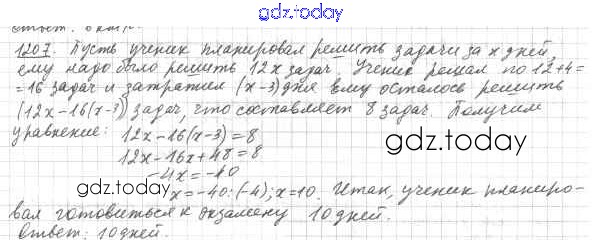 gdz.today
1207. Пусть ученик планировал решить задачи за x дней,
ему надо было решить 12x задач. Ученик решал по 12+4=
=16 задач и затратил (x-3) дня. Ему осталось решить
(12x-16(x-3)) задач, что составляет 8 задач. Получим
уравнение: 12x-16(x-3)=8
gdz.today
12x-16x+48=8
-4x=-40
gdz.today
x=-40:(-4); x=10. Итак, ученик планиро-
вал готовиться к экзамену 10 дней.
Ответ: 10 дней.
gdz.today